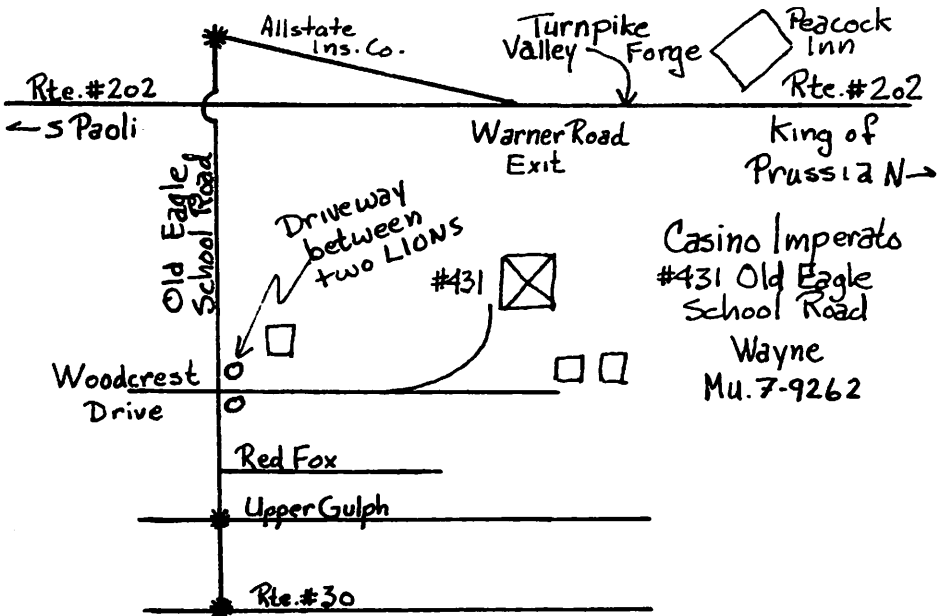 Allstate
Ins. Co.
Turnpike
Valley Forge
Peacock
Inn
Rte. #202
Rte. #202
← S Paoli
Warner Road
Exit
King of
Prussia N→
Old Eagle
School Road
Driveway
between
two LIONS
#431
Casino Imperato
#431 Old Eagle
School Road
Wayne
Mu. 7-9262
Woodcrest
Drive
Red Fox
Upper Gulph
Rte. #30